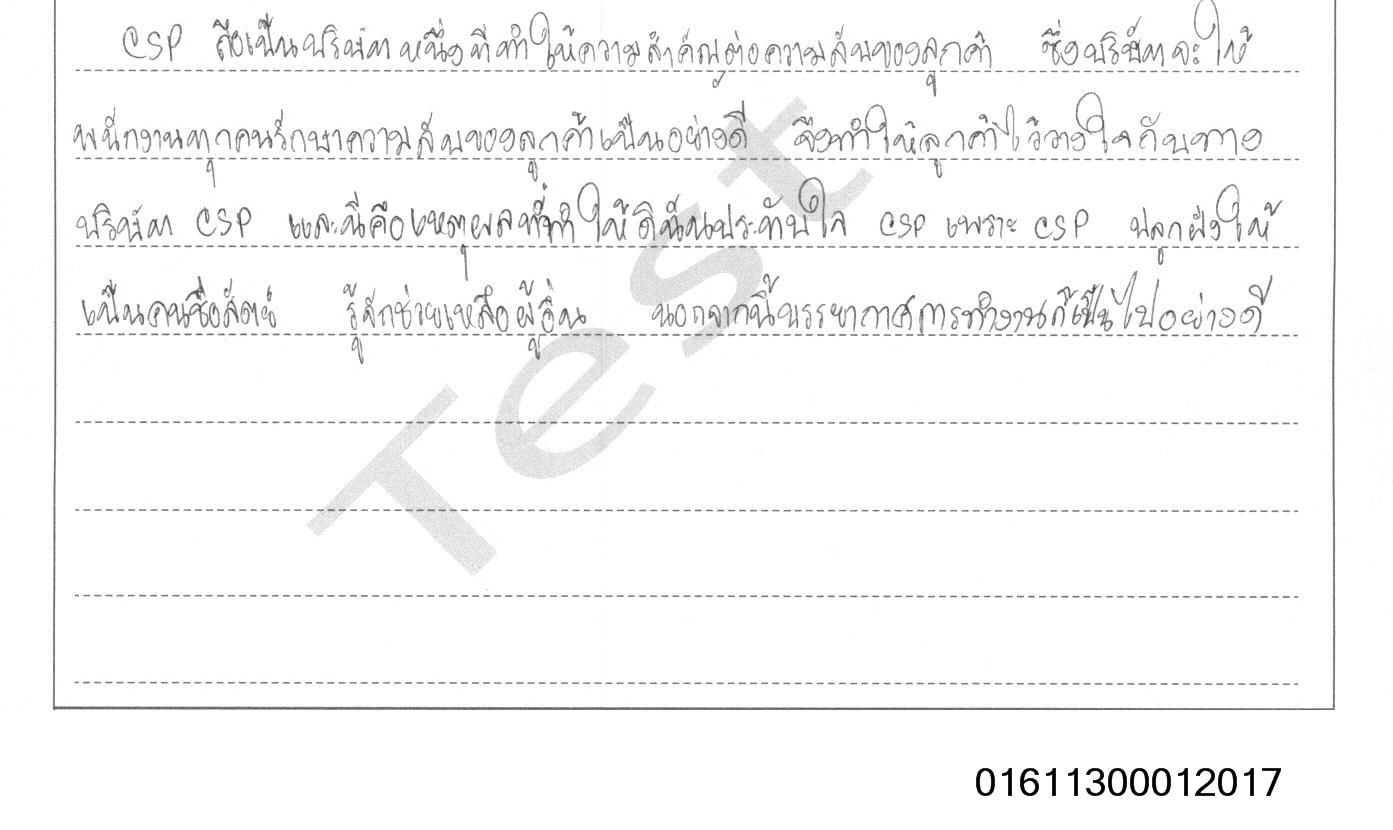 CSP ถือเป็นบริษัทหนึ่งที่ทำให้ความสำคัญต่อความลับของลูกค้า ซึ่งบริษัทจะให้
พนักงานทุกคนรักษาความลับของลูกค้าเป็นอย่างดี จึงทำให้ลูกค้าไว้วางใจกับทาง
บริษัท CSP และนี่คือเหตุผลที่ทำให้ดิฉันประทับใจ CSP เพราะ CSP ปลูกฝังให้
เป็นคนซื่อสัตย์ รู้จักช่วยเหลือผู้อื่น นอกจากนี้บรรยากาศการทำงานก็เป็นไปอย่างดี
Test
01611300012017